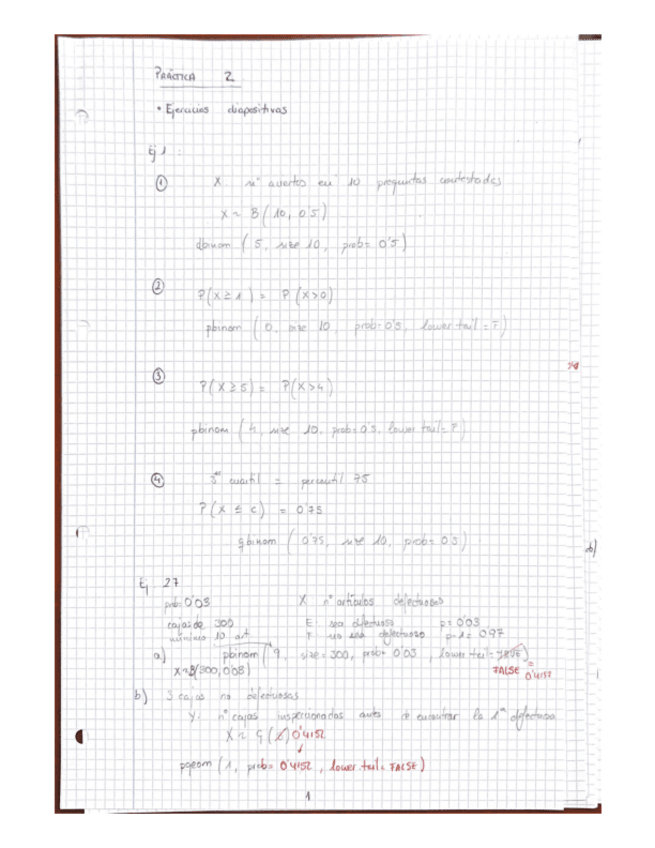 PRÁCTICA 2
• Ejercicios diapositivas
Ej 1 :
① X nº aciertos en 10 preguntas contestadas
X ~ B ( 10, 0'5 )
dbinom ( 5, size 10, prob= 0'5 )
② P(X ≥ 1 ) = P (X>0)
pbinom ( 0, size 10, prob= 0'5, lower tail = F )
③ P(X ≥ 5) = P(X>4)
pbinom ( 4, size 10, prob= 0'5, lower tail= F )
④ 3er cuartil = percentil 75
P(X ≤ c) = 0'75
qbinom ( 0'75, size 10, prob= 0'5 )
b)
Ej 27
prob= 0'03 X: nº artículos defectuosos
cajas de 300 E: sea defectuoso p= 0'03
mínimo 10 art F: no sea defectuoso p-1= 0'97
a) pbinom ( 9, size= 300, prob= 0'03, lower tail= TRUE )
X~B(300, 0'03) FALSE = 0'4152
b) 3 cajas no defectuosas
Y: nº cajas inspeccionadas antes de encontrar la 1ª defectuosa
X ~ G ( ) 0'4152
pgeom ( 1, prob= 0'4152, lower tail= FALSE )
1